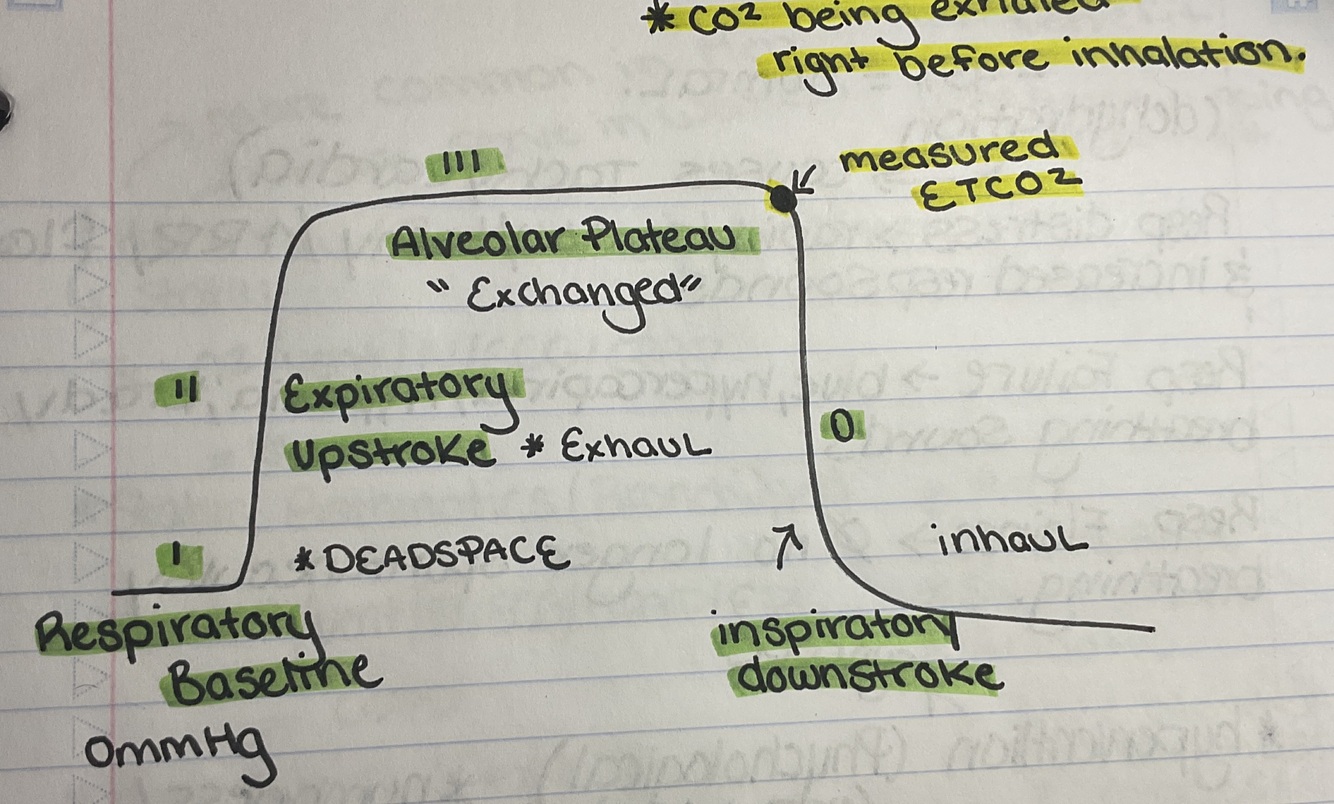 * CO² being exhaled
right before inhalation.
III
measured
ETCO2
Alveolar Plateau
"Exchanged"
II
Expiratory
upstroke * ExhauL
0
I
*DEADSPACE
inhauL
Respiratory
Baseline
inspiratory
downstroke
0mmHg